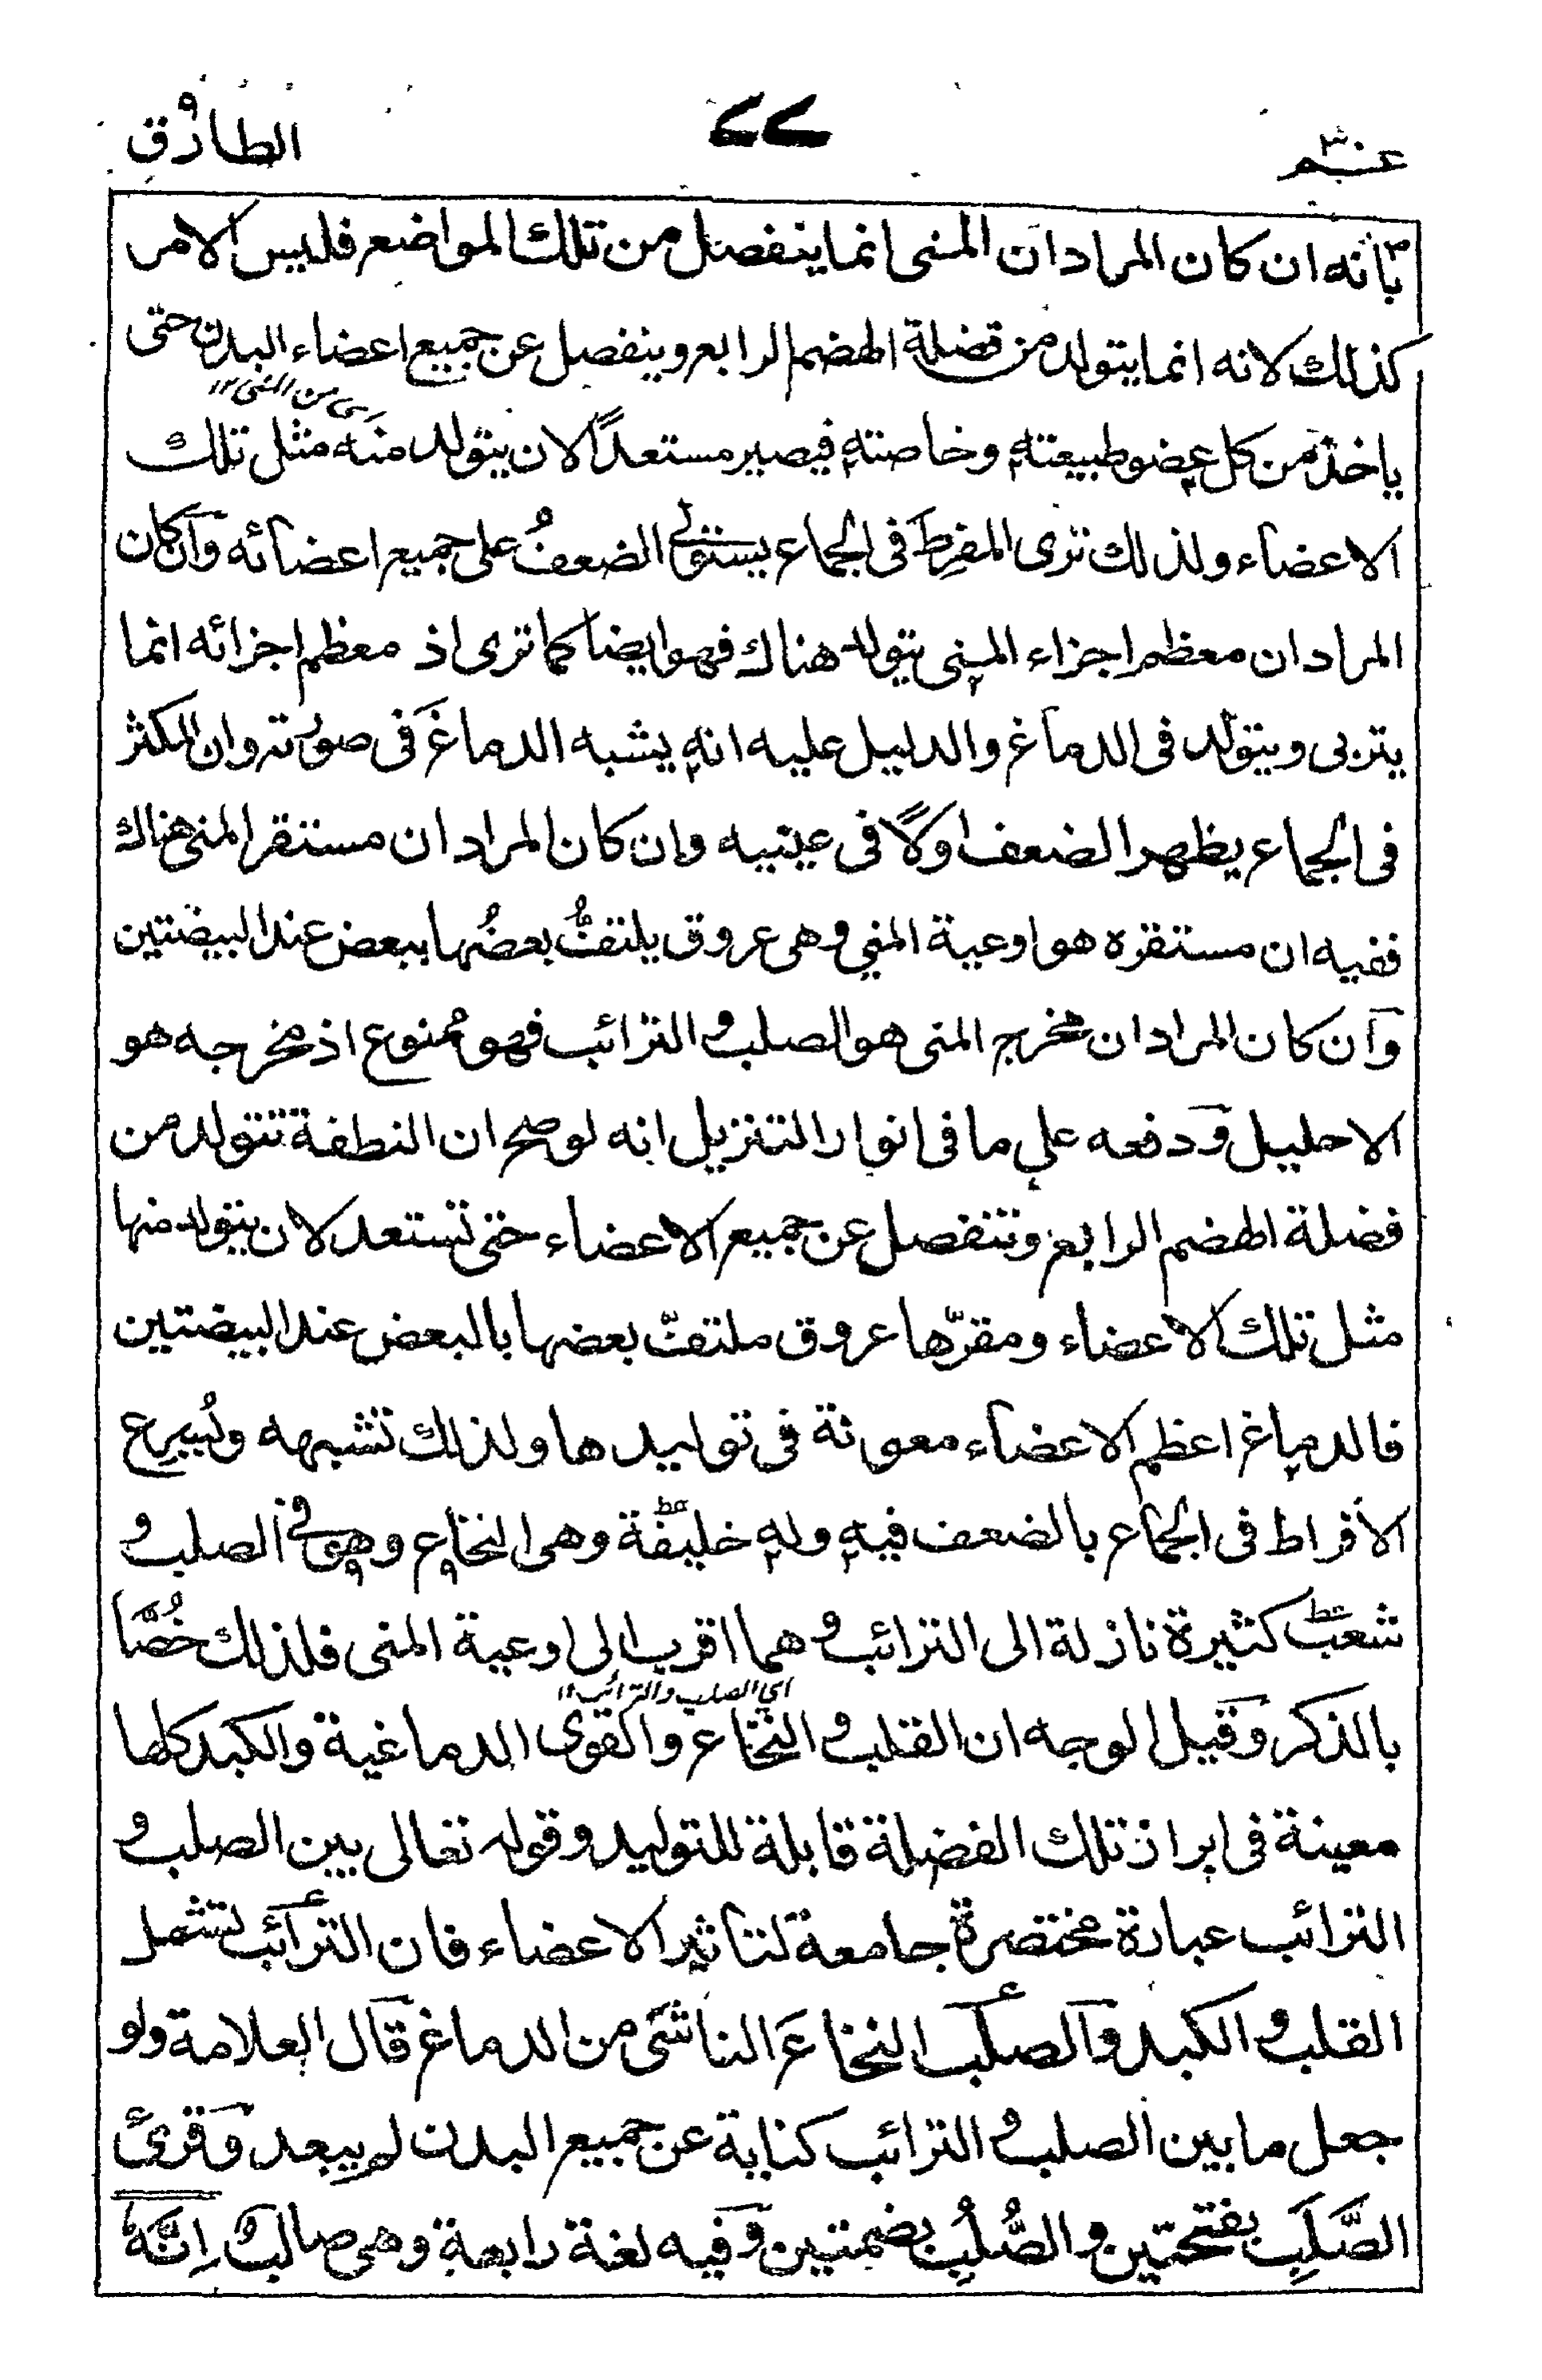 عم ٣٠
٧٧
الطارق
بأنه ان كان المراد ان المنى انما ينفصل من تلك المواضع فليس الامر
كذلك لانه انما يتولد من فضلة الهضم الرابع وينفصل عن جميع اعضاء البدن حتى
اى من المنى ١٢
ياخذ من كل عضو طبيعته وخاصته فيصير مستعدًا لان يتولد منه مثل تلك
الاعضاء ولذلك ترى المفرِط فى الجماع يستولى الضعفُ على جميع اعضائه وان كان
المراد ان معظم اجزاء المنى يتولد هناك فهو ايضا كما ترى اذ معظم اجزائه انما
يتربى ويتولد فى الدماغ والدليل عليه انه يشبه الدماغ فى صورته وان المكثر
فى الجماع يظهر الضعف اولًا فى عينيه وان كان المراد ان مستقر المنى هناك
ففيه ان مستقره هو اوعية المني وهى عروق يلتفُّ بعضُها ببعض عند البيضتين
وان كان المراد ان مخرج المنى هو الصلب والترائب فهو ممنوع اذ مخرجه هو
الاحليل ودفعه على ما فى انوار التنزيل انه لو صح ان النطفة تتولد من
فضلة الهضم الرابع وتنفصل عن جميع الاعضاء حتى تستعد لان يتولد منها
مثل تلك الاعضاء ومقرّها عروق ملتفّ بعضها بالبعض عند البيضتين
فالدماغ اعظم الاعضاء معونة فى توليدها ولذلك تشبهه ويُسرع
الافراط فى الجماع بالضعف فيه وله خليفة وهى النخاع وهو فى الصلب و
شعب كثيرة نازلة الى الترائب وهما اقرب الى اوعية المنى فلذلك خُصَّا
اي الصلب والترائب ١٢
بالذكر وقيل الوجه ان القلب والنخاع والقوى الدماغية والكبد كلها
معينة فى ابراز تلك الفضلة قابلة للتوليد وقوله تعالى بين الصلب و
الترائب عبارة مختصرة جامعة لتاثير الاعضاء فان الترائب تشمل
القلب والكبد والصلب النخاع الناشى من الدماغ قال العلامة ولو
جعل ما بين الصلب والترائب كناية عن جميع البدن لم يبعد وقرئ
الصَّلَبِ بفتحتين والصُّلُبِ بضمتين وفيه لغة رابعة وهى صالب اِنَّهٗ